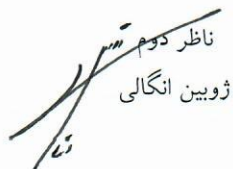 ناظر دوم
ژوبین انگالی